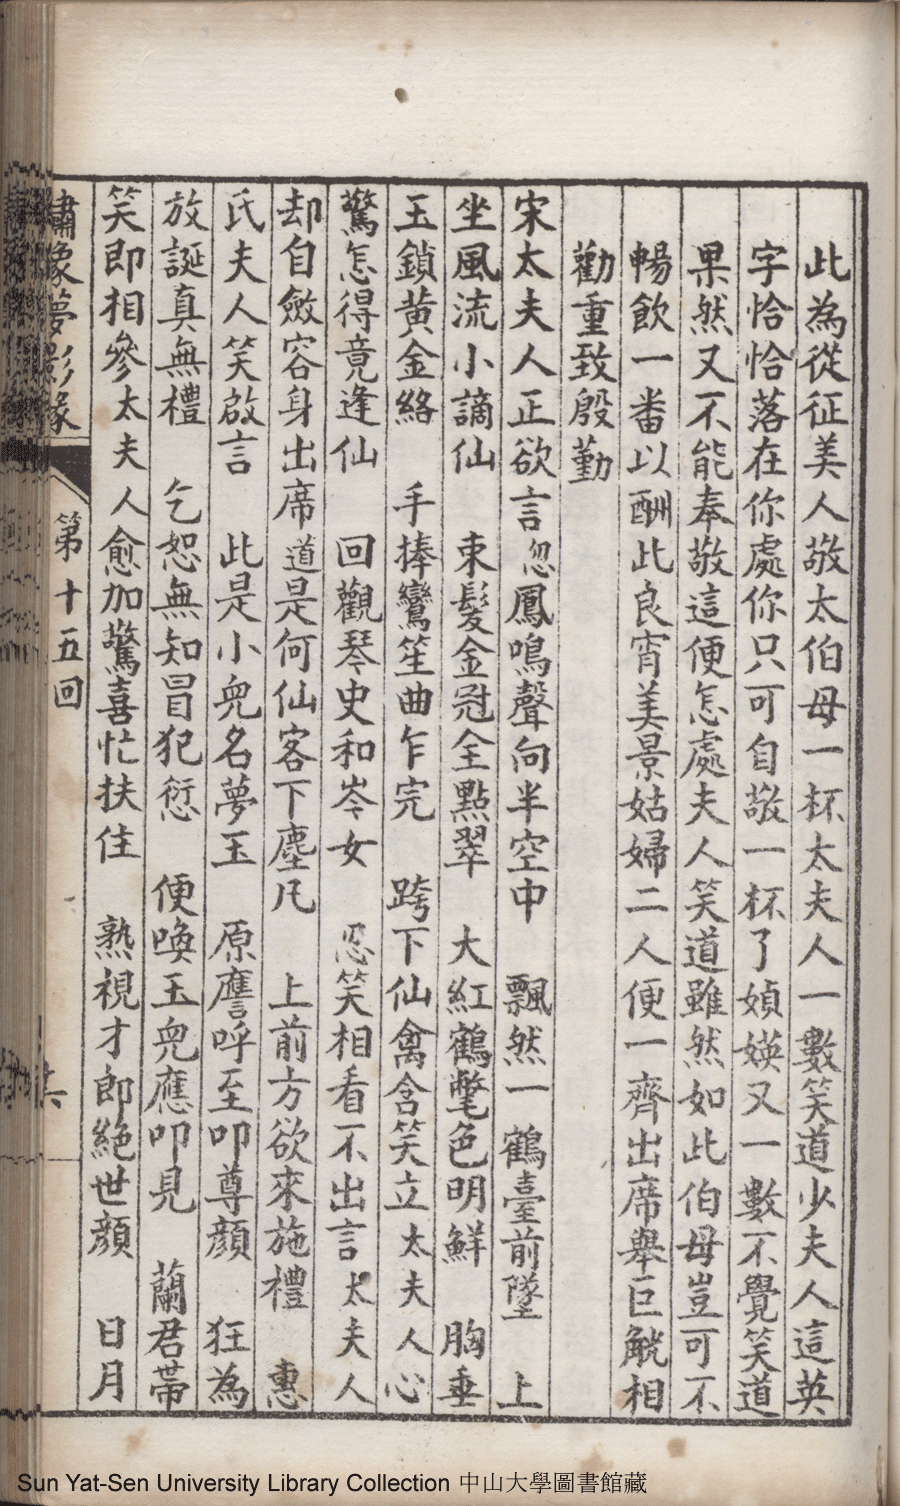 此為從征美人敬太伯母一杯太夫人一數笑道少夫人這英
字恰恰落在你處你只可自敬一杯了媜媖又一數不覺笑道
果然又不能奉敬這便怎處夫人笑道雖然如此伯母豈可不
暢飲一番以酬此良宵美景姑婦二人便一齊出席舉巨觥相
勸重致殷勤
宋太夫人正欲言忽鳳鳴聲向半空中 飄然一鶴臺前墜 上
坐風流小謫仙 束髮金冠全點翠 大紅鶴氅色明鮮 胸垂
玉鎖黃金絡 手捧鸞笙曲乍完 跨下仙禽含笑立太夫人心
驚怎得竟逢仙 回觀琴史和岑女 忍笑相看不出言太夫人
却自斂容身出席道是何仙客下塵凡 上前方欲來施禮 惠
氏夫人笑啟言 此是小兒名夢玉 原應呼至叩尊顏 狂為
放誕真無禮 乞恕無知冒犯愆 便喚玉兒應叩見 蘭君帶
笑即相參太夫人愈加驚喜忙扶住 熟視才郎絕世顏 日月
繡像夢影緣
第十五回
Sun Yat-Sen University Library Collection 中山大學圖書館藏